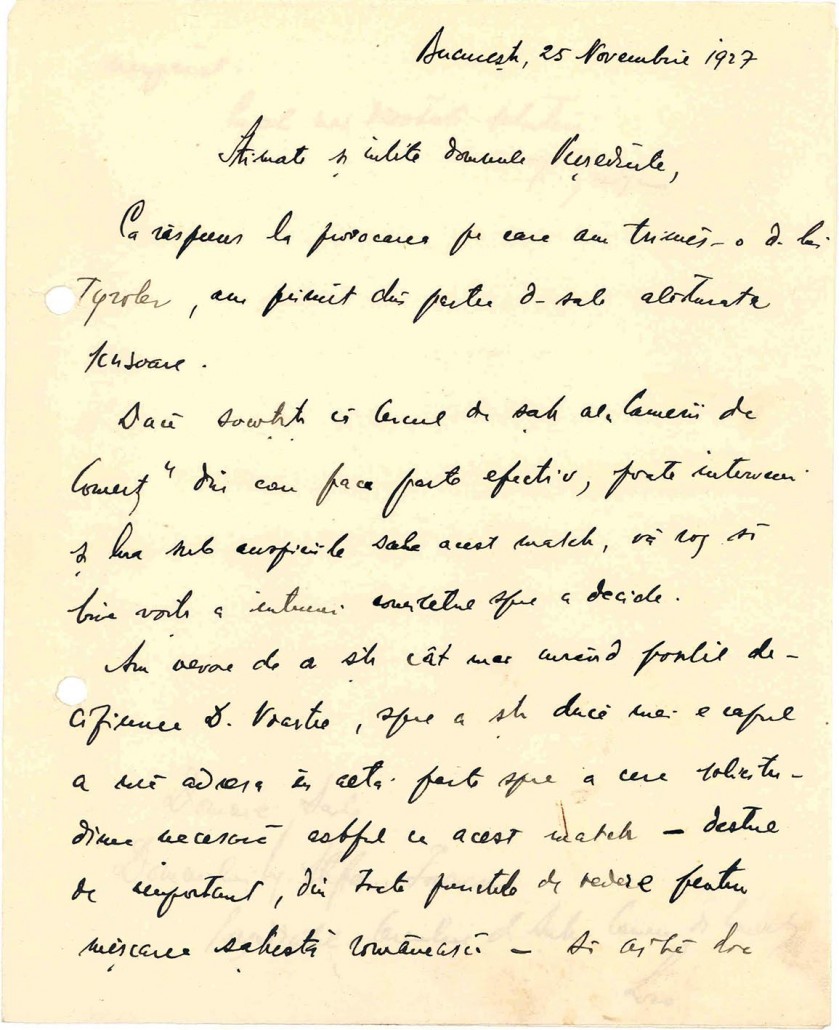 București, 25 Novembrie 1927
Stimate și iubite domnule Președinte,
Ca răspuns la provocarea pe care am trimis-o d-lui
Tyroler, am primit din partea d-sale alăturata
scrisoare.
Dacă socotiți că Cercul de șah al „Camerii de
Comerț" din care face parte efectiv, poate interveni
și lua sub auspiciile sale acest match, vă rog să
bine voiți a întruni comitetul spre a decide.
Am nevoe de a ști cât mai curând posibil de-
cisiunea D. Voastre, spre a ști dacă mai e cazul
a mă adresa în altă parte spre a cere solicitu-
dinea necesară astfel ca acest match – destul
de important, din toate punctele de vedere pentru
mișcarea șahistă românească – să aibă loc